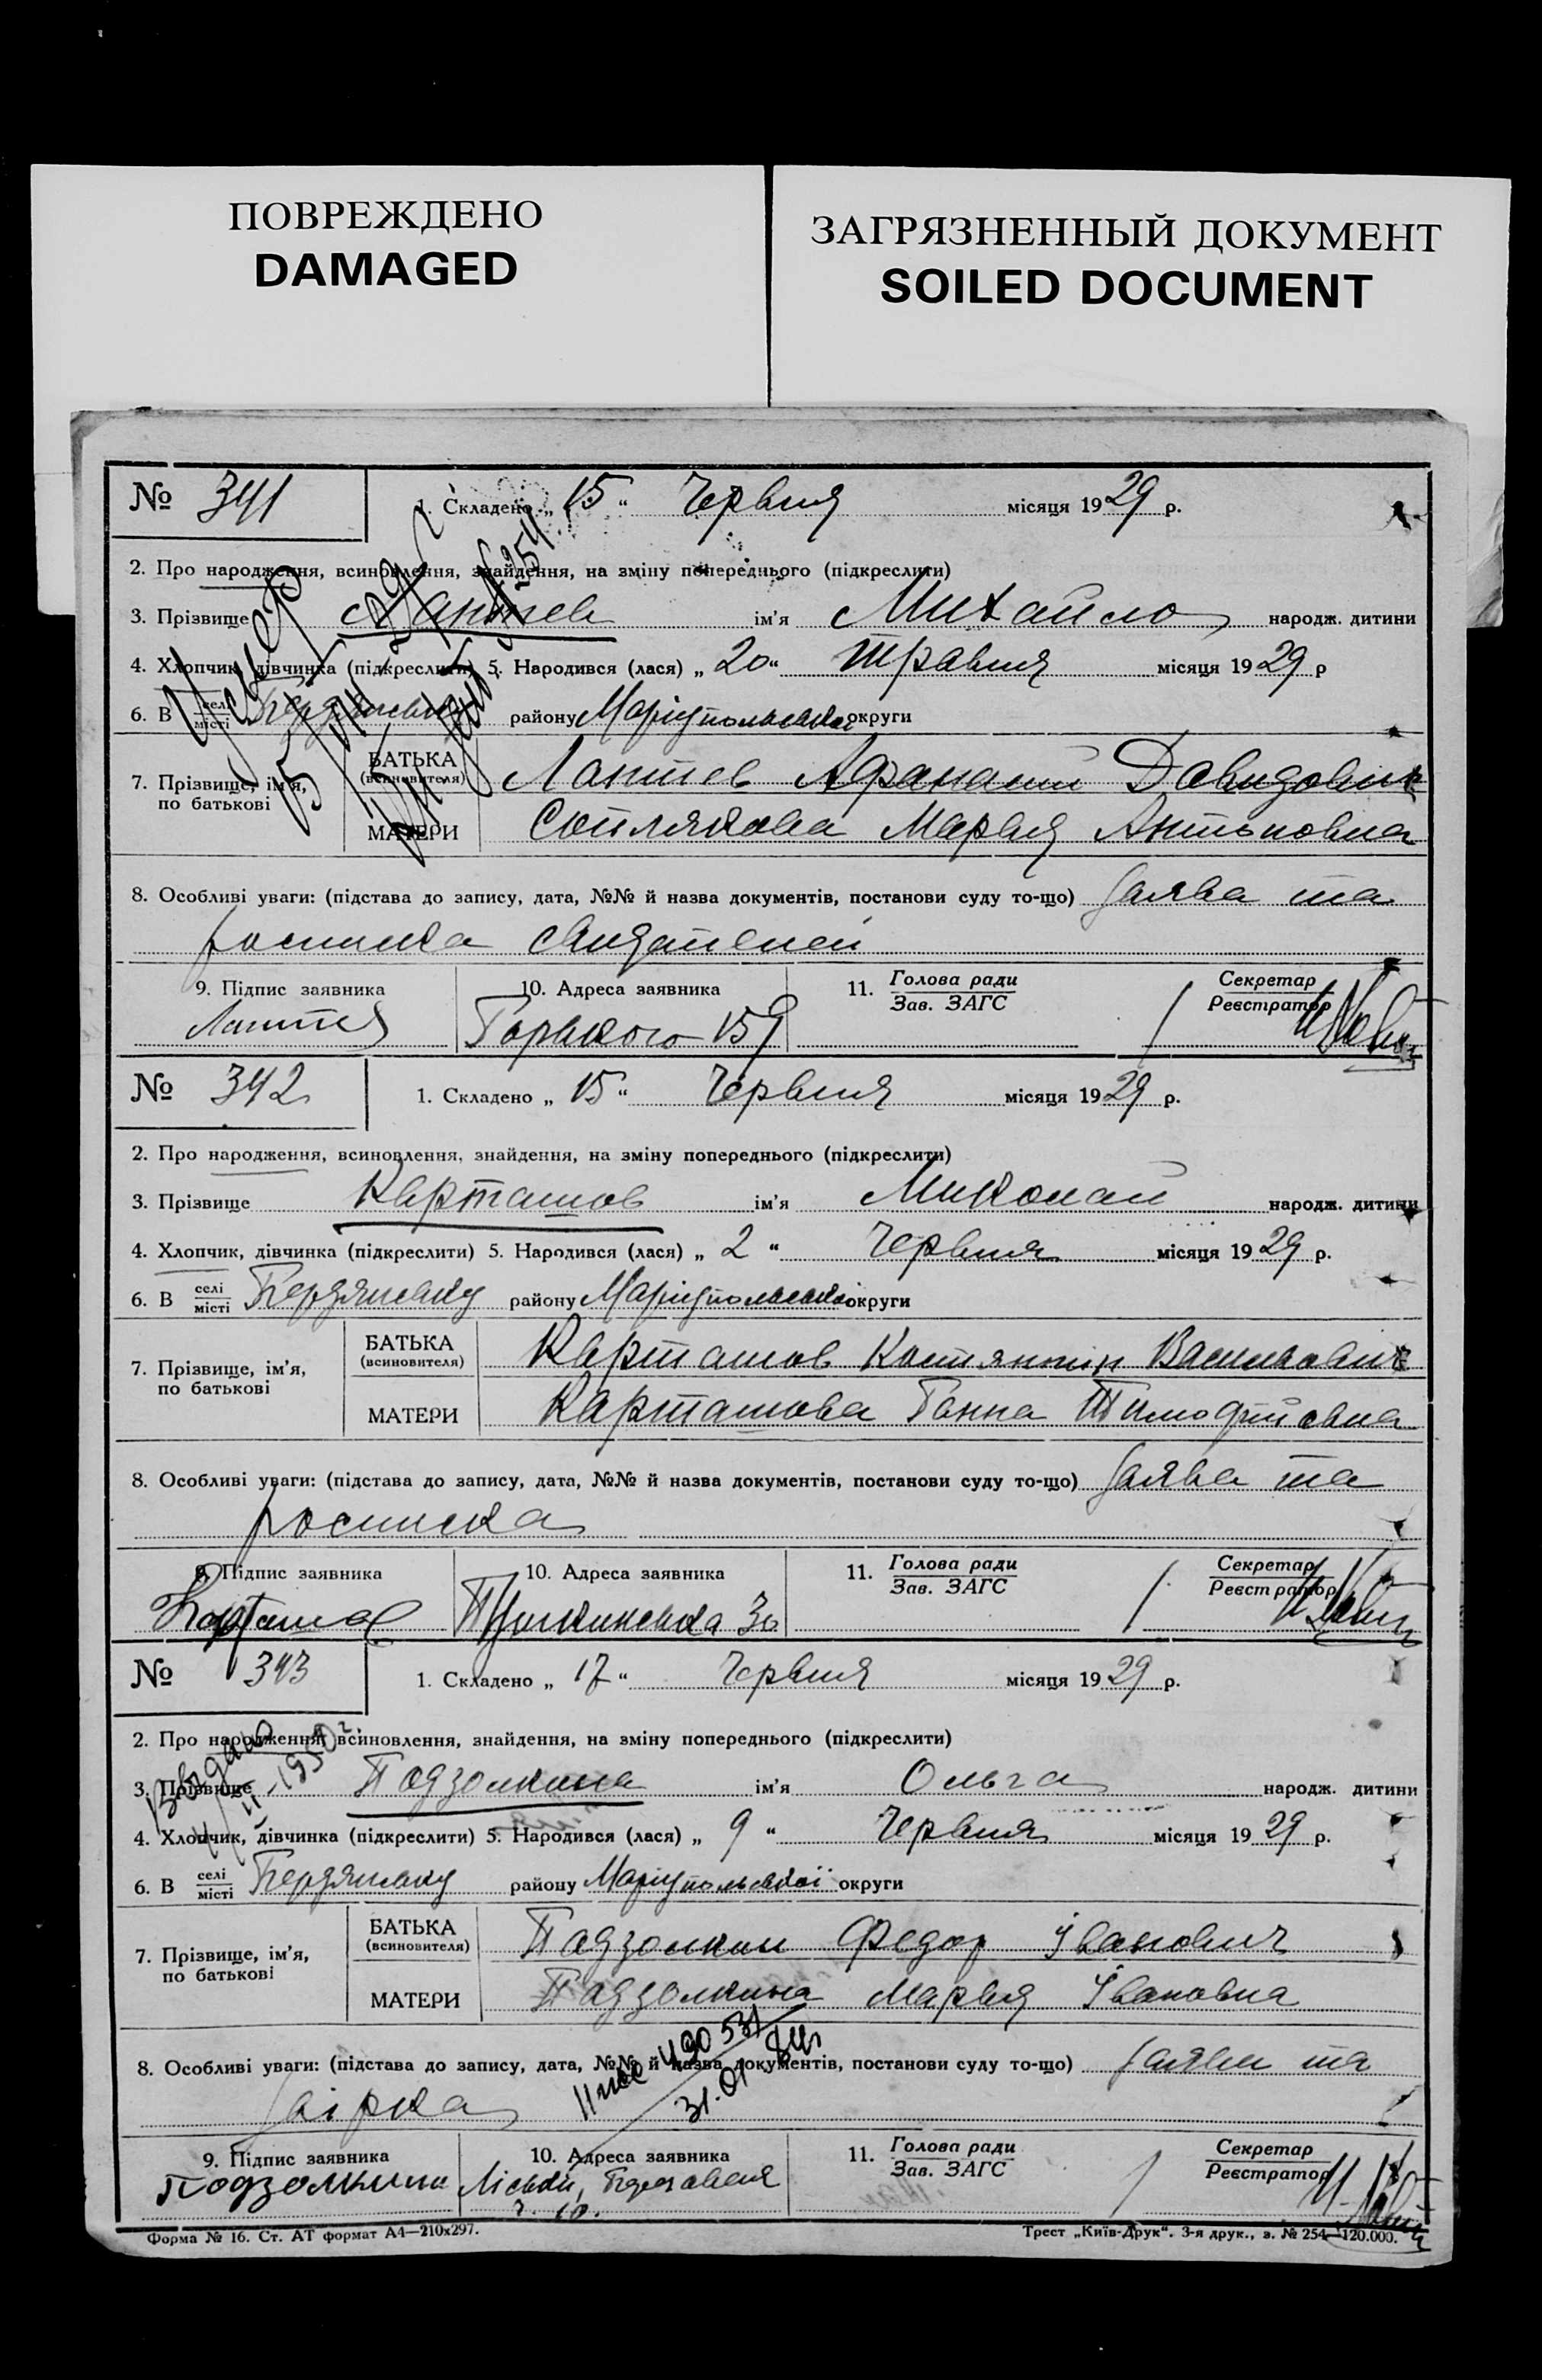 ПОВРЕЖДЕНО
DAMAGED
ЗАГРЯЗНЕННЫЙ ДОКУМЕНТ
SOILED DOCUMENT
№ 341 1. Складено „ 15 “ Червня місяця 1929 р.
2. Про народження, всиновлення, знайдення, на зміну попереднього (підкреслити)
3. Прізвище Лаптев ім'я Михайло народж. дитини
4. Хлопчик, дівчинка (підкреслити) 5. Народився (лася) „ 20 “ травня місяця 1929 р
6. В селі місті району Маріупольської округи
Умер
7. Прізвище, ім'я, по батькові
БАТЬКА (всиновителя) Лаптев Афанасий Давидович
МАТЕРИ Соплякова Марья Антоновна
8. Особливі уваги: (підстава до запису, дата, №№ й назва документів, постанови суду то-що) Заява та
росписка
9. Підпис заявника 10. Адреса заявника 11. Голова ради Зав. ЗАГС Секретар Реєстратор
Горького 159
№ 342 1. Складено „ 15 “ Червня місяця 1929 р.
2. Про народження, всиновлення, знайдення, на зміну попереднього (підкреслити)
3. Прізвище Карташов ім'я Миколай народж. дитини
4. Хлопчик, дівчинка (підкреслити) 5. Народився (лася) „ 2 “ Червня місяця 1929 р.
6. В селі місті Бердянську району Маріупольської округи
7. Прізвище, ім'я, по батькові
БАТЬКА (всиновителя) Карташов Костянтін Васильович
МАТЕРИ Карташова Ганна Тимофійовна
8. Особливі уваги: (підстава до запису, дата, №№ й назва документів, постанови суду то-що) Заява та
росписка
9. Підпис заявника 10. Адреса заявника 11. Голова ради Зав. ЗАГС Секретар Реєстратор
Пушкинська 30
№ 343 1. Складено „ 17 “ Червня місяця 1929 р.
2. Про народження, всиновлення, знайдення, на зміну попереднього (підкреслити)
3. Прізвище Подзолкина ім'я Ольга народж. дитини
4. Хлопчик, дівчинка (підкреслити) 5. Народився (лася) „ 9 “ Червня місяця 1929 р.
6. В селі місті Бердянську району Маріупольської округи
7. Прізвище, ім'я, по батькові
БАТЬКА (всиновителя) Падзолкин Федор Іванович
МАТЕРИ Падзолкина Марья Івановна
8. Особливі уваги: (підстава до запису, дата, №№ й назва документів, постанови суду то-що) Заява та
490 531
31.01
9. Підпис заявника 10. Адреса заявника 11. Голова ради Зав. ЗАГС Секретар Реєстратор
Подзолкин
Форма № 16. Ст. АТ формат А4—210х297. Трест „Київ-Друк“. 3-я друк., з. № 254—120.000.